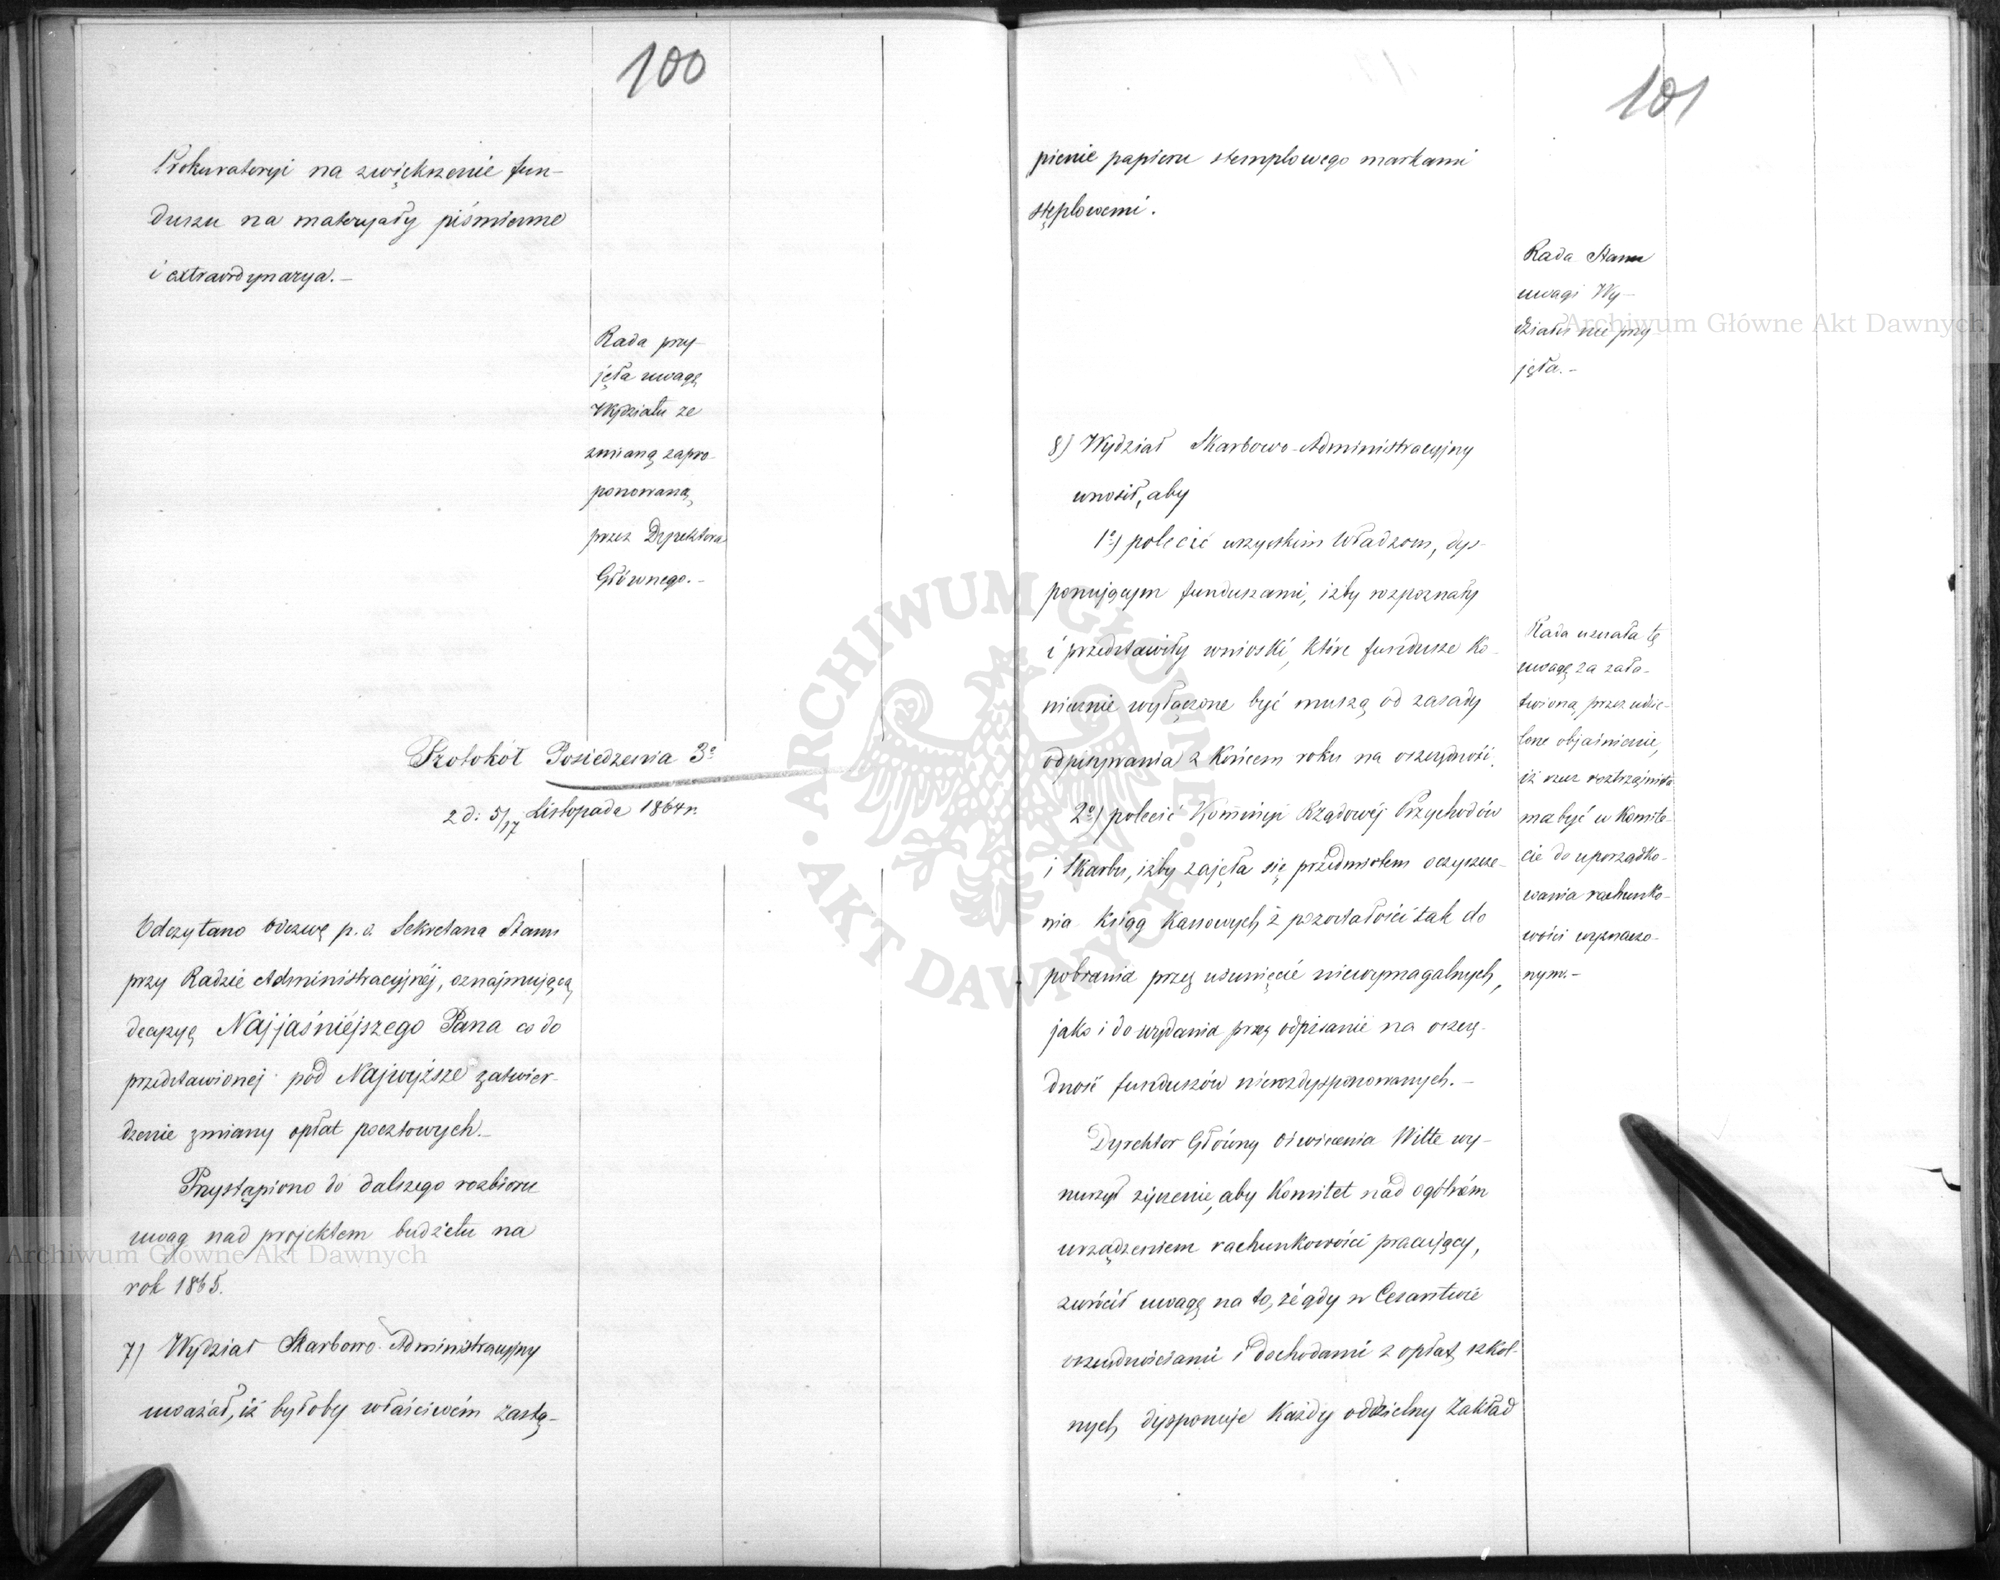 100
Prokuratoryi na zwiększenie fun-
duszu na materyały piśmienne
i extraordynarya.-
Rada przy-
jęła uwagę
Wydziału ze
zmianą zapro-
ponowaną
przez Dyrektora
Głównego.-
Protokół Posiedzenia 3º
z d: 5/17 Listopada 1864 r.
Odczytano odezwę p. o. Sekretarza Stanu
przy Radzie Administracyjnéj, oznajmującą
decyzyę Najjaśniéjszego Pana co do
przedstawionej pod Najwyższe zatwier-
dzenie zmiany opłat pocztowych.-
Przystąpiono do dalszego rozbioru
uwag nad projektem budżetu na
rok 1865.
7) Wydział Skarbowo-Administracyjny
uważał, iż byłoby właściwém zastą-
101
pienie papieru stemplowego markami
stęplowemi.
Rada Stanu
uwagi Wy-
działu nie przy
jęła.-
8) Wydział Skarbowo-Administracyjny
wnosił, aby
1º) polecić wszystkim Władzom, dys-
ponującym funduszami, iżby rozpoznały
i przedstawiły wnioski, które fundusze ko-
niecznie wyłączone być muszą od zasady
odpisywania z końcem roku na oszczędności.
2º) polecić Kommisyi Rządowéj Przychodów
i Skarbu, iżby zajęła się przedmiotem oczyszcze-
nia ksiąg kassowych z pozostałości tak do
pobrania przez usunięcie niewymagalnych,
jako i do wydania przez odpisanie na oszczę-
dność funduszów nierozdysponowanych.-
Rada uznała tę
uwagę za zała-
twioną przez udzie-
lone objaśnienie,
iż rzecz roztrząśnięta
ma być w Komite-
cie do uporządko-
wania rachunko-
wości wyznaczo-
nym.-
Dyrektor Główny Oświecenia Witte wy-
nurzył życzenie, aby Komitet nad ogólném
urządzeniem rachunkowości pracujący,
zwrócił uwagę na to, że gdy w Cesarstwie
oszczędnościami i dochodami z opłat szkol-
nych dysponuje każdy oddzielny Zakład
ARCHIWUM GŁÓWNE
AKT DAWNYCH
Archiwum Główne Akt Dawnych
Archiwum Główne Akt Dawnych